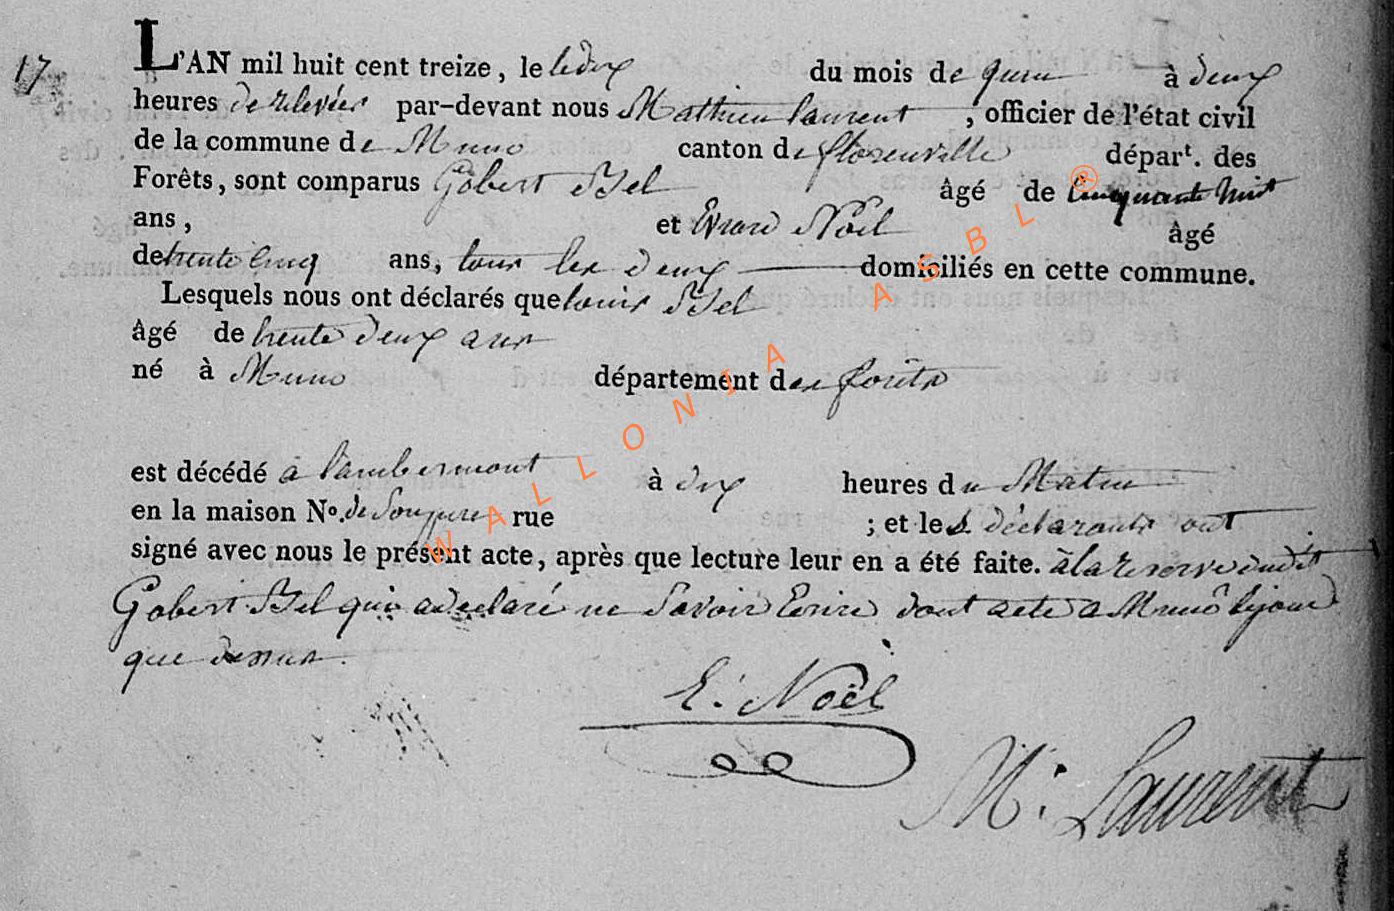 17
L'AN mil huit cent treize, le le dix du mois de juin à deux
heures de relevées par-devant nous Mathieu Laurent, officier de l'état civil
de la commune de Muno canton de florenville départ. des
Forêts, sont comparus Gobert Bel âgé de Cinquante huit
ans, et Evrard Noël âgé
de trente Cinq ans, tous les deux domiciliés en cette commune.
Lesquels nous ont déclarés que louis Bel
âgé de trente deux ans
né à Muno département des forêts
est décédé a lambermont à dix heures du Matin
en la maison No. de rue ; et les déclarants ont
signé avec nous le présent acte, après que lecture leur en a été faite. à la reserve dudit
Gobert Bel qui a declaré ne Savoir Ecrire dont acte a Muno lejour
que dessus.
E. Noël
M. Laurent
WALLONIA ASBL ®